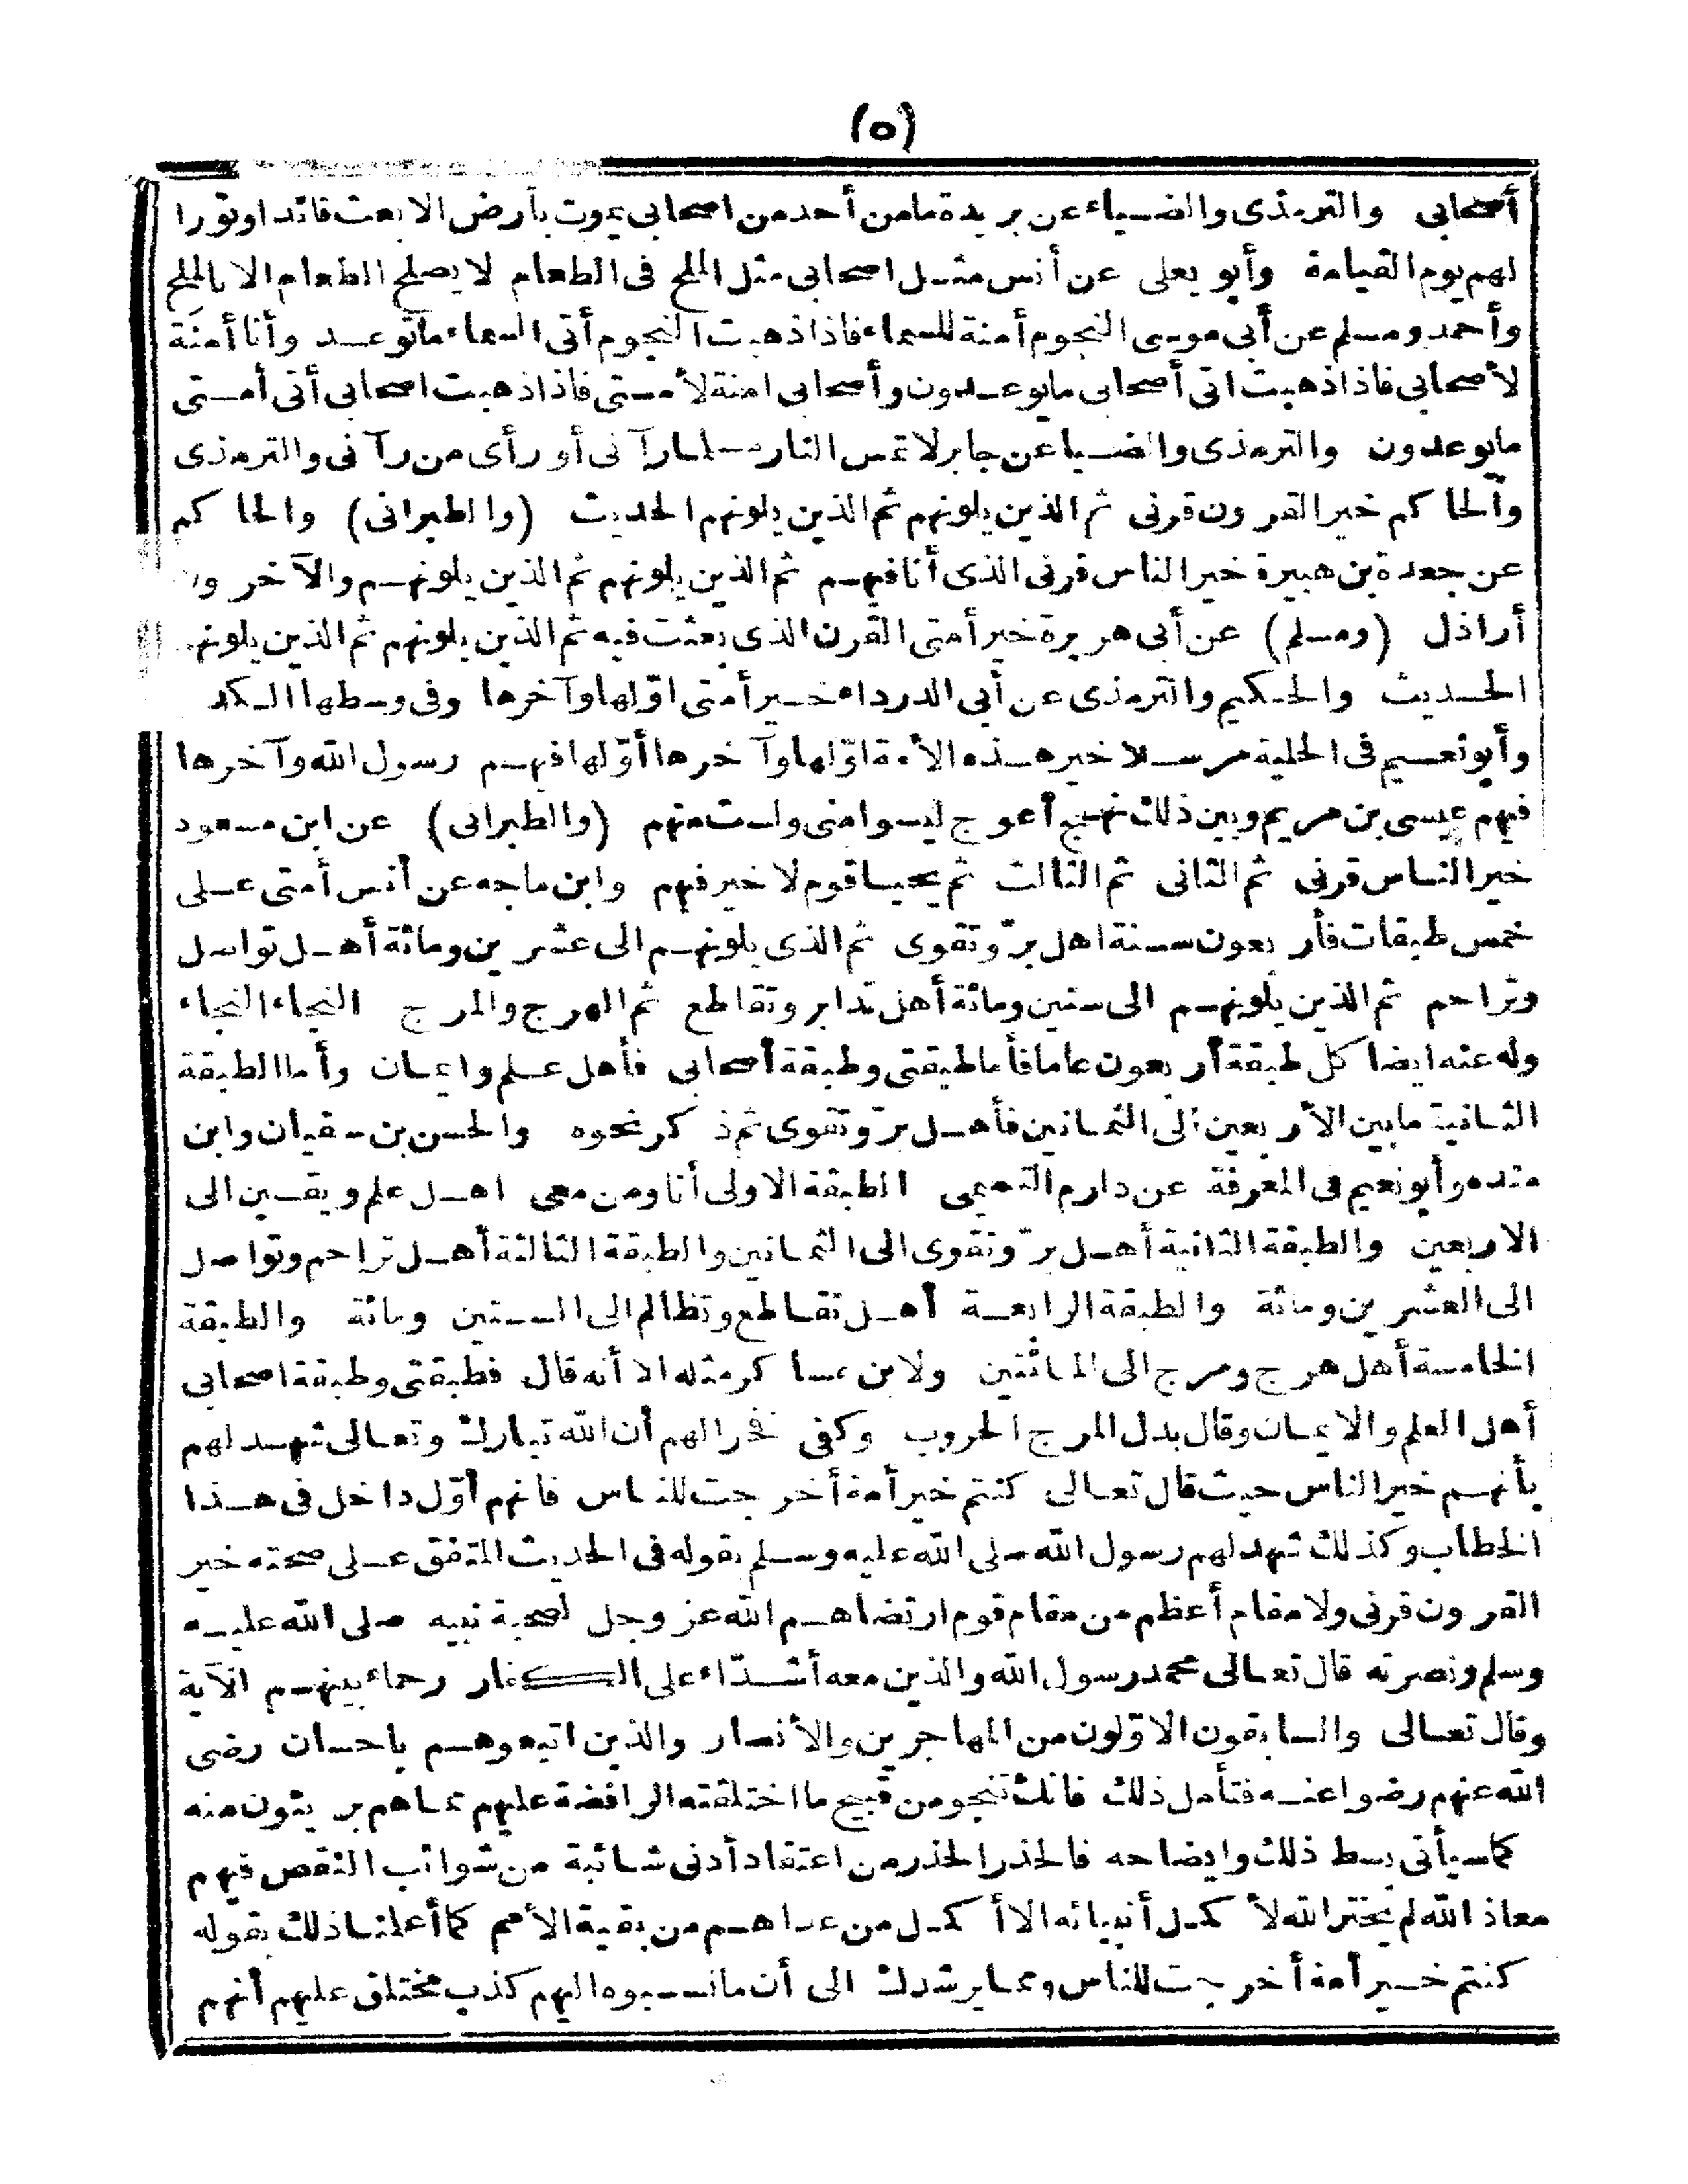 (٥)
أصحابى والترمذى والضياء عن بريدة ما من أحد من اصحابى يموت بأرض الا بعث قائدا ونورا
لهم يوم القيامة وأبو يعلى عن أنس مثل اصحابى مثل الملح فى الطعام لا يصلح الطعام الا بالملح
وأحمد ومسلم عن أبى موسى النجوم أمنة للسماء فاذا ذهبت النجوم أتى السماء ما توعد وأنا أمنة
لأصحابى فاذا ذهبت اتى أصحابى ما يوعدون وأصحابى امنة لأمتى فاذا ذهبت اصحابى أتى أمتى
ما يوعدون والترمذى والضيا عن جابر لا تمس النار مسلما رآنى أو رأى من رآنى والترمذى
والحاكم خير القرون قرنى ثم الذين يلونهم ثم الذين يلونهم الحديث (والطبرانى) والحاكم
عن جعدة بن هبيرة خير الناس قرنى الذى أنا فيهم ثم الذين يلونهم ثم الذين يلونهم والآخرون
أراذل (ومسلم) عن أبى هريرة خير أمتى القرن الذى بعثت فيه ثم الذين يلونهم ثم الذين يلونهم
الحديث والحكيم والترمذى عن أبى الدرداء خير أمتى اوّلها وآخرها وفى وسطها الكدر
وأبو نعيم فى الحلية مرسلا خير هذه الأمة اوّلها وآخرها أوّلها فيهم رسول الله وآخرها
فيهم عيسى بن مريم وبين ذلك نهج أعوج ليسوا منى ولست منهم (والطبرانى) عن ابن مسعود
خير الناس قرنى ثم الثانى ثم الثالث ثم يجيئ قوم لا خير فيهم وابن ماجه عن أنس أمتى على
خمس طبقات فأربعون سنة اهل برّ وتقوى ثم الذى يلونهم الى عشرين ومائة أهل تواصل
وتراحم ثم الذين يلونهم الى ستين ومائة أهل تدابر وتقاطع ثم الهرج والمرج النجاء النجاء
وله عنه ايضا كل طبقة أربعون عاما فأما طبقتى وطبقة أصحابى فأهل علم وايمان وأما الطبقة
الثانية ما بين الأربعين الى الثمانين فأهل برّ وتقوى ثم ذكر نحوه والحسن بن سفيان وابن
منده وأبو نعيم فى المعرفة عن دارم التميمى الطبقة الاولى أنا ومن معى اهل علم ويقين الى
الاربعين والطبقة الثانية أهل برّ وتقوى الى الثمانين والطبقة الثالثة أهل تراحم وتواصل
الى العشرين ومائة والطبقة الرابعة أهل تقاطع وتظالم الى الستين ومائة والطبقة
الخامسة أهل هرج ومرج الى المائتين ولابن عساكر مثله الا أنه قال فطبقتى وطبقة اصحابى
أهل العلم والايمان وقال بدل المرج الحروب وكفى فخرا لهم أن الله تبارك وتعالى شهد لهم
بأنهم خير الناس حيث قال تعالى كنتم خير أمة أخرجت للناس فانهم أوّل داخل فى هذا
الخطاب وكذلك شهد لهم رسول الله صلى الله عليه وسلم بقوله فى الحديث المتفق على صحته خير
القرون قرنى ولا مقام أعظم من مقام قوم ارتضاهم الله عز وجل لصحبة نبيه صلى الله عليه
وسلم ونصرته قال تعالى محمد رسول الله والذين معه أشدّاء على الكفار رحماء بينهم الآية
وقال تعالى والسابقون الاوّلون من المهاجرين والأنصار والذين اتبعوهم باحسان رضى
الله عنهم ورضوا عنه فتأمل ذلك فانك تنجو من قبيح ما اختلقته الرافضة عليهم مما هم بريئون منه
كما سيأتى بسط ذلك وايضاحه فالحذر الحذر من اعتقاد أدنى شائبة من شوائب النقص فيهم
معاذ الله لم يختر الله لأكمل أنبيائه الا أكمل من عداهم من بقية الأمم كما أعلمنا ذلك بقوله
كنتم خير أمة أخرجت للناس ومما يرشدك الى أن ما نسبوه اليهم كذب مختلق عليهم أنهم